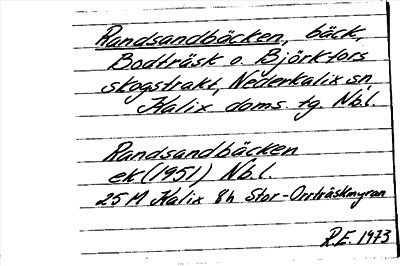 Randsandbäcken, bäck,
Bodträsk o. Björkfors
skogstrakt, Nederkalix sn,
Kalix doms. tg. Nbl.
Randsandbäcken
ek (1951) Nbl.
25 M Kalix 8h Stor-Orrträskmyran
R.E. 1973